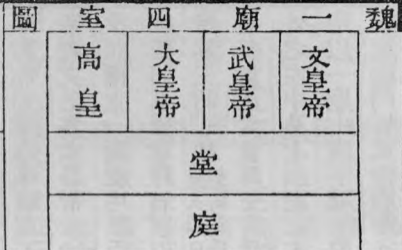 魏一廟四室圖
文皇帝
武皇帝
大皇帝
高皇
堂
庭